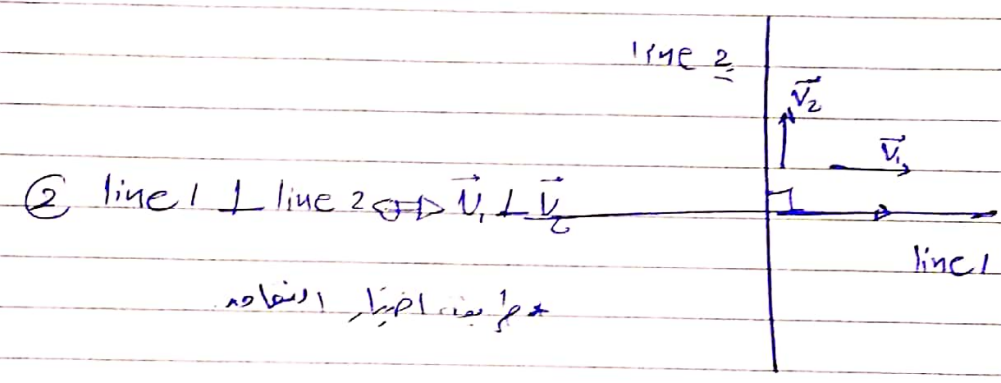 line 2
v⃗₂
v⃗₁
② line 1 ⊥ line 2 ⟺ v⃗₁ ⊥ v⃗₂
line 1
* طريقة اختبار التعامد